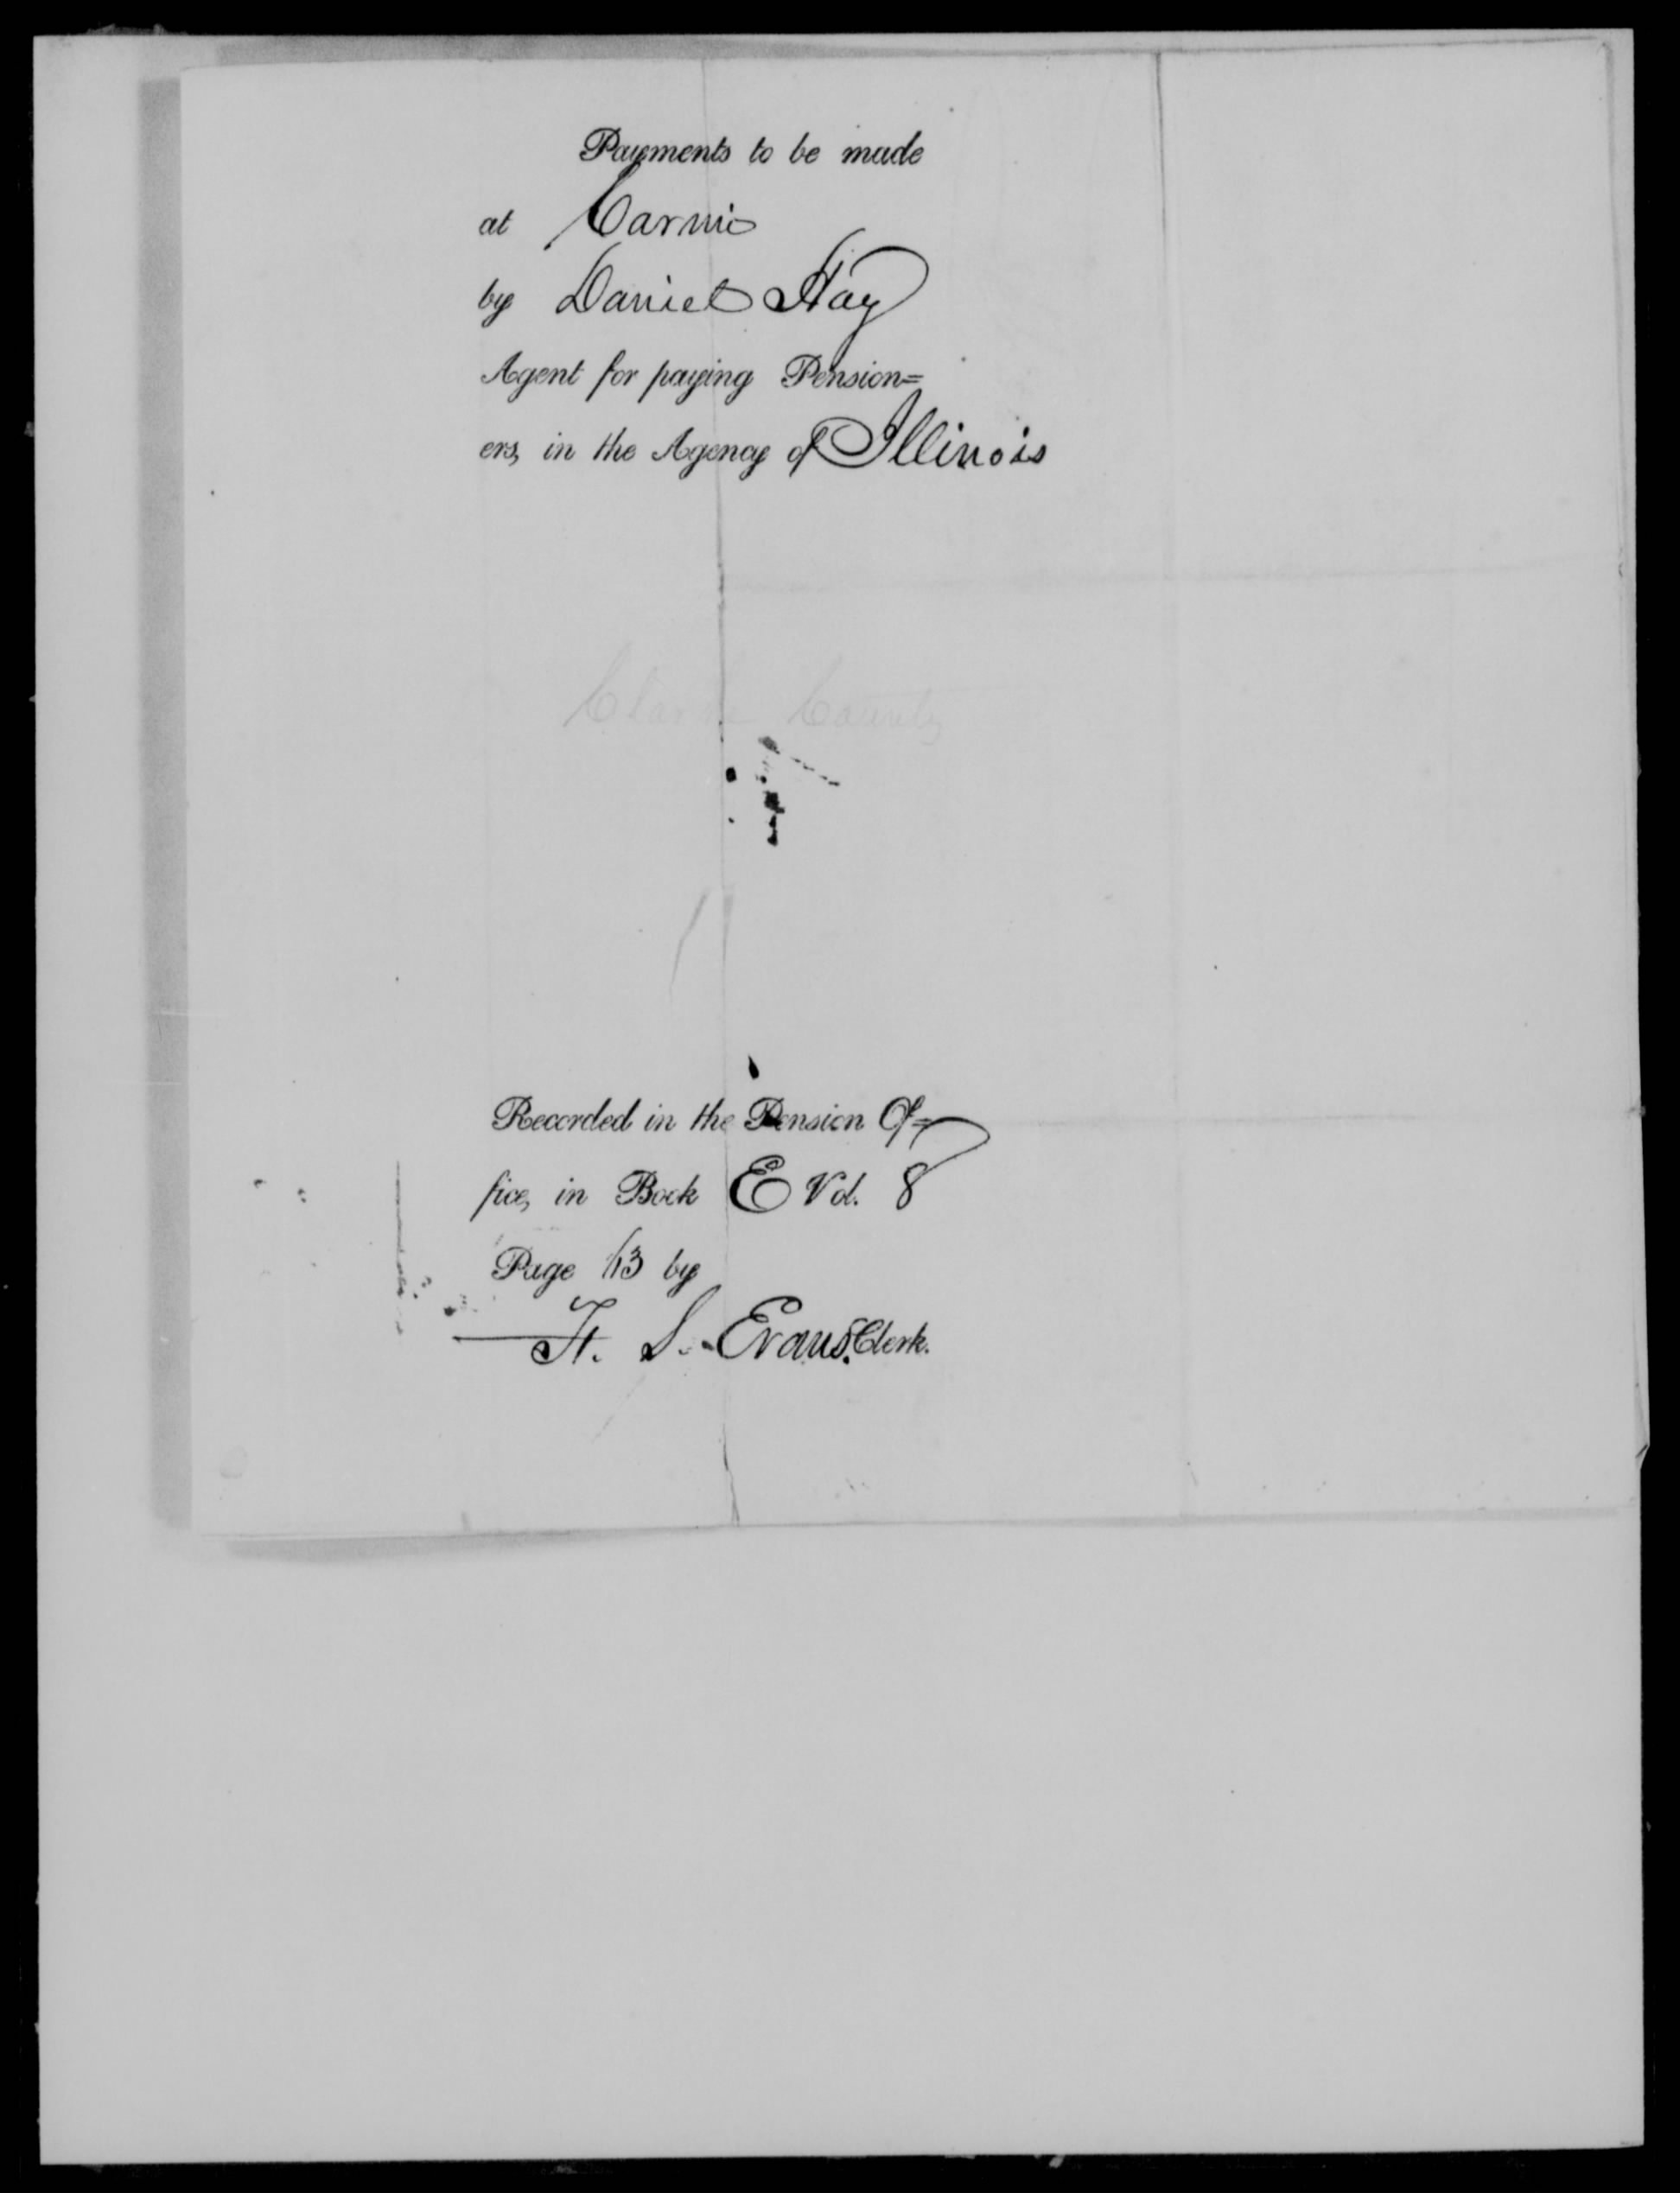 Payments to be made
at Carmi
by Daniel Hay
Agent for paying Pension=
ers, in the Agency of Illinois
Clarke County
Recorded in the Pension Of=
fice, in Book E Vol. 8
Page 63 by
H. S. Evans. Clerk.